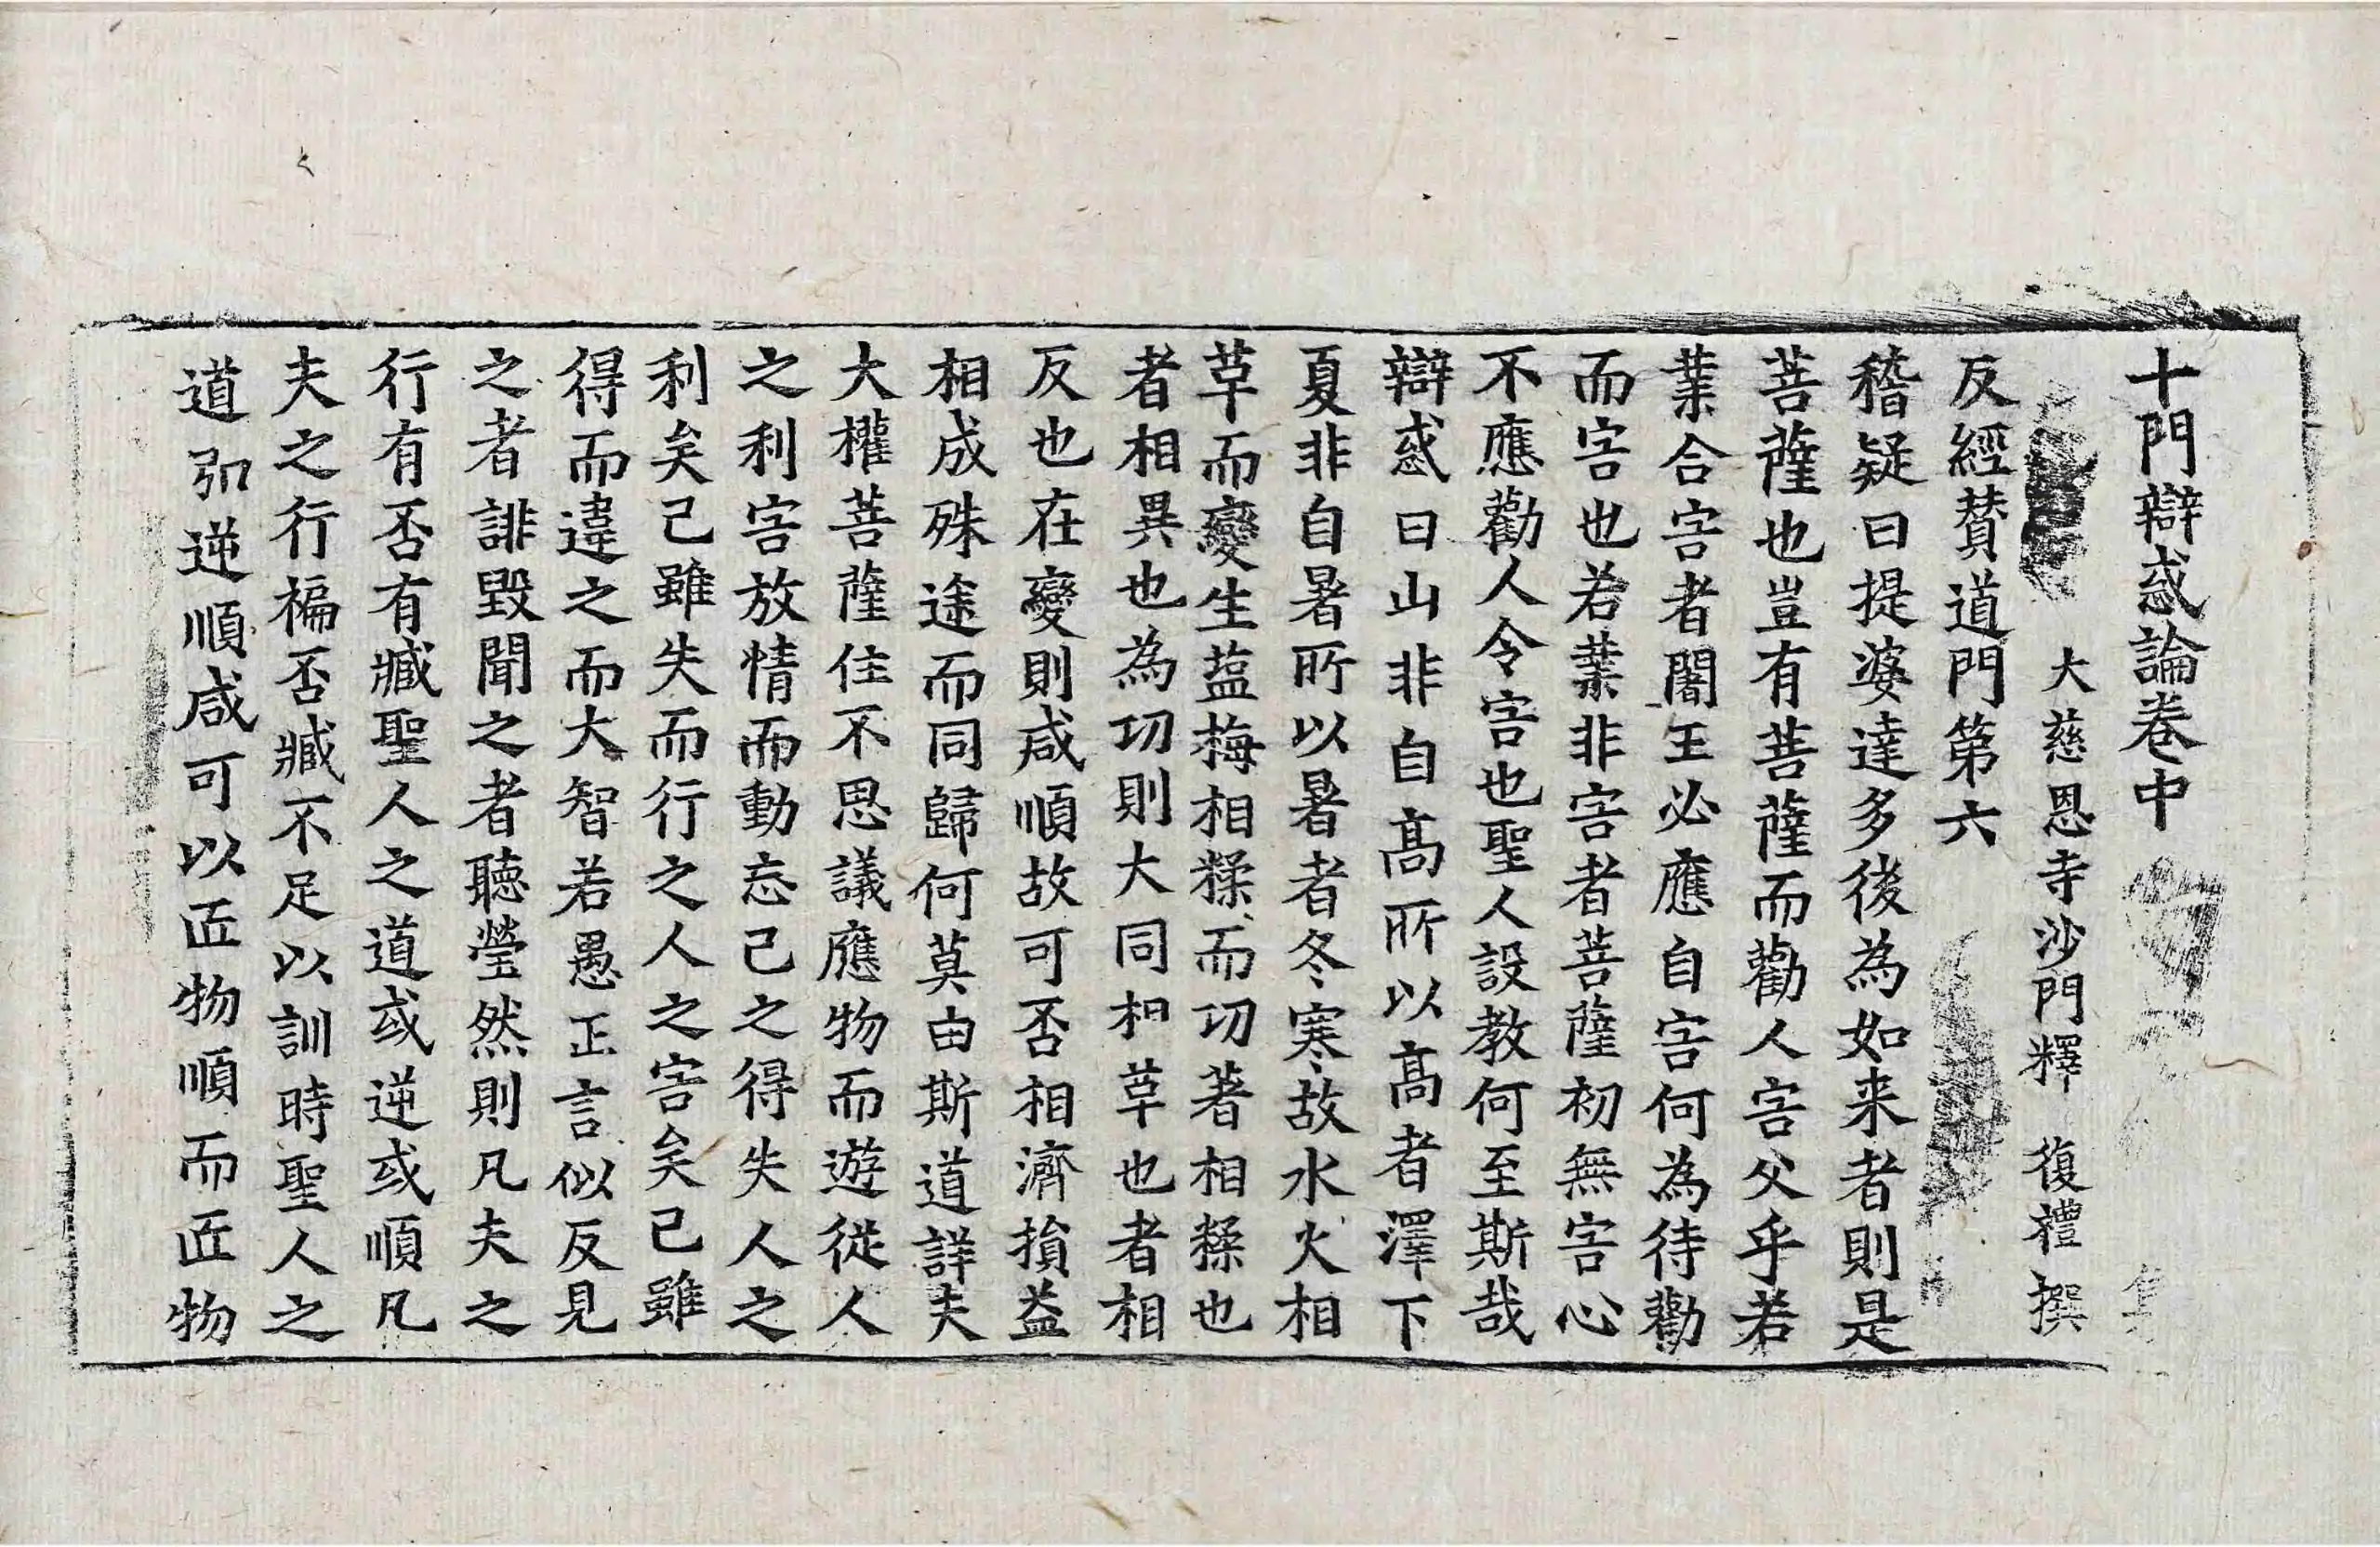 十門辯惑論卷中
大慈恩寺沙門釋 復禮撰
反經賛道門第六
稽疑曰提婆達多後為如来者則是
菩薩也豈有菩薩而勸人害父乎若
業合害者闍王必應自害何為待勸
而害也若業非害者菩薩初無害心
不應勸人令害也聖人設教何至斯哉
辯惑曰山非自髙所以髙者澤下
夏非自暑所以暑者冬寒故水火相
革而變生蓝梅相糅而功著相糅也
者相異也為功則大同和革也者相
反也在變則咸順故可否相濟損益
相成殊途而同歸何莫由斯道詳夫
大權菩薩住不思議應物而遊從人
之利害放情而動忘己之得失人之
利矣己雖失而行之人之害矣己雖
得而違之而大智若愚正言似反見
之者誹毀聞之者聽瑩然則凡夫之
行有否有臧聖人之道或逆或順凡
夫之行褊否臧不足以訓時聖人之
道弘逆順咸可以匠物順而匠物